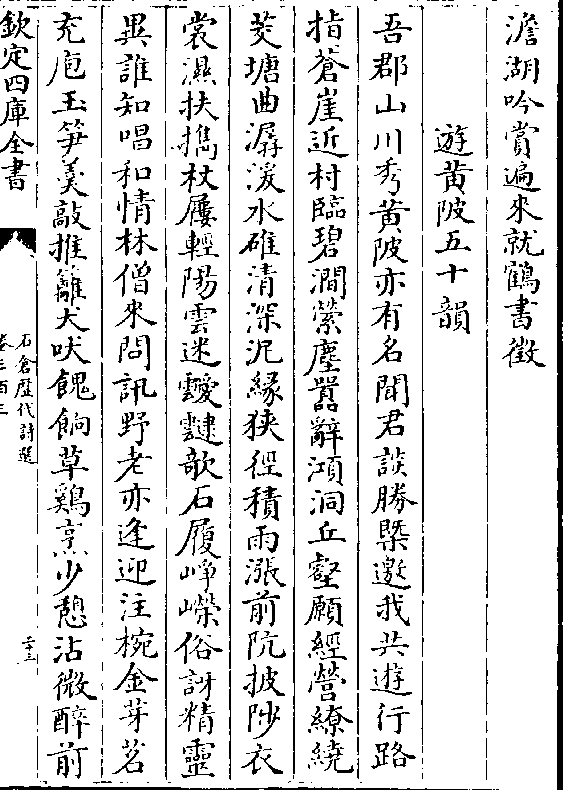 澹湖吟賞遍來就鶴書徵
遊黄陂五十韻
吾郡山川秀黄陂亦有名聞君談勝槩邀我共遊行路
指蒼崖近村臨碧澗縈塵囂辭澒洞丘壑願經營繚繞
茭塘曲潺湲水碓清深泥緣狹徑積雨漲前阬披陟衣
裳濕扶擕杖屨輕陽雲迷靉靆欹石履崢嶸俗訝精靈
異誰知唱和情林僧來問訊野老亦逢迎注椀金芽茗
充庖玉笋羮敲推籬犬吠餽餉草鷄烹少憩沾微醉前
欽定四庫全書
石倉歴代詩選
卷三百三
二十三